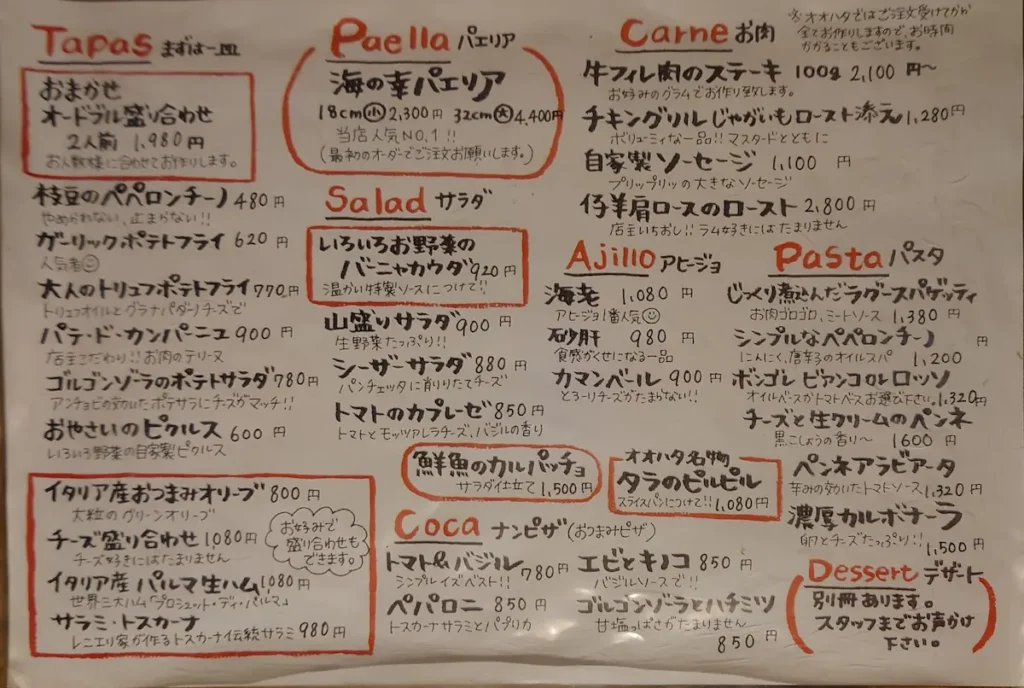 Tapas まずは一皿
おまかせ
オードブル盛り合わせ
2人前 1,980円
お人数様に合わせてお作りします。
枝豆のペペロンチーノ 480円
やめられない、止まらない!!
ガーリックポテトフライ 620円
人気者
大人のトリュフポテトフライ 770円
トリュフオイルとグラナパダーノチーズで
パテ・ド・カンパーニュ 900円
店主こだわり!!お肉のテリーヌ
ゴルゴンゾーラのポテトサラダ 780円
アンチョビの効いたポテサラにチーズがマッチ!!
おやさいのピクルス 600円
いろいろ野菜の自家製ピクルス
イタリア産おつまみオリーブ 800円
大粒のグリーンオリーブ
チーズ盛り合わせ 1,080円
チーズ好きにはたまりません
イタリア産 パルマ生ハム 1,080円
世界三大ハム「プロシュット・ディ・パルマ」
サラミ・トスカーナ
レニエリ家が作るトスカーナ伝統サラミ 980円
お好みで
盛り合わせも
できます。
Paella パエリア
海の幸パエリア
18cm小 2,300円 32cm大 4,400円
当店人気NO.1!!
(最初のオーダーでご注文お願いします。)
Salad サラダ
いろいろお野菜の
バーニャカウダ 920円
温かい特製ソースにつけて!!
山盛りサラダ 900円
生野菜たっぷり!!
シーザーサラダ 880円
パンチェッタに削りたてチーズ
トマトのカプレーゼ 850円
トマトとモッツァレラチーズ、バジルの香り
鮮魚のカルパッチョ
サラダ仕立て 1,500円
オオハタ名物
タラのピルピル
スライスパンにつけて!! 1,080円
Coca ナンピザ(おつまみピザ)
トマト&バジル 780円
シンプルイズベスト!!
ペパロニ 850円
トスカーナサラミとパプリカ
エビとキノコ 850円
バジルソースで!!
ゴルゴンゾーラとハチミツ
甘塩っぱさがたまりません
850円
Carne お肉
※オオハタではご注文受けてから
全てお作りしますので、お時間
かかることもございます。
牛フィレ肉のステーキ 100g 2,100円〜
お好みのグラムでお作り致します。
チキングリル じゃがいもロースト添え 1,280円
ボリューミィな一品!!マスタードとともに
自家製ソーセージ 1,100円
プリップリッの大きなソーセージ
仔羊肩ロースのロースト 2,800円
店主いちおし!!ラム好きにはたまりません
Ajillo アヒージョ
海老 1,080円
アヒージョ1番人気
砂肝 980円
食感がくせになる一品
カマンベール 900円
とろーりチーズがたまらない!!
Pasta パスタ
じっくり煮込んだラグースパゲッティ
お肉ゴロゴロ、ミートソース 1,380円
シンプルなペペロンチーノ
にんにく、唐辛子のオイルスパ 1,200円
ボンゴレ ビアンコorロッソ
オイルベースかトマトベースお選び下さい。1,320円
チーズと生クリームのペンネ
黒こしょうの香り〜 1600円
ペンネアラビアータ
辛みの効いたトマトソース 1,320円
濃厚カルボナーラ
卵とチーズたっぷり!! 1,500円
Dessert デザート
別冊あります。
スタッフまでお声かけ
下さい。